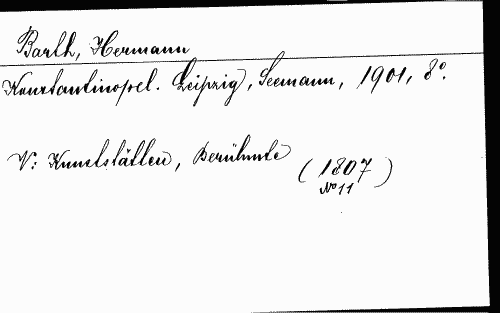 Barth, Hermann
Konstantinopel. Leipzig, Seemann, 1901, 8°.
V: Kunststätten, Berühmte
(1807)
No 11